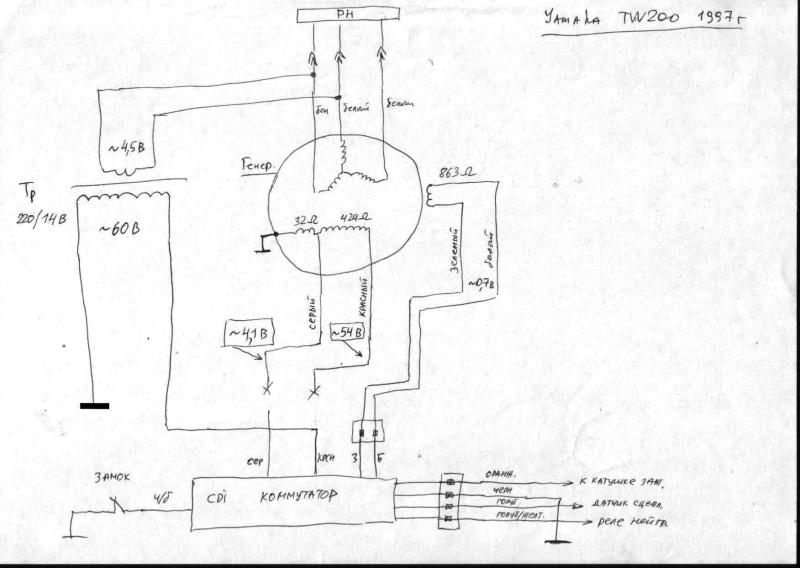 РН
YAMAHA TW200 1997г
бел
белый
белый
~4,5В
Генер.
863Ω
Тр
220/14В
~60В
32Ω
424Ω
зеленый
белый
~0,7В
серый
красный
~4,1В
~54В
сер
крсн
З
Б
ЗАМОК
ч/б
CDI КОММУТАТОР
ОРАНЖ.
К КАТУШКЕ ЗАЖ.
ЧЕРН
ГОЛУБ
ДАТЧИК СЦЕПЛ.
ГОЛУБ/ЖЕЛТ.
РЕЛЕ НЕЙТР.